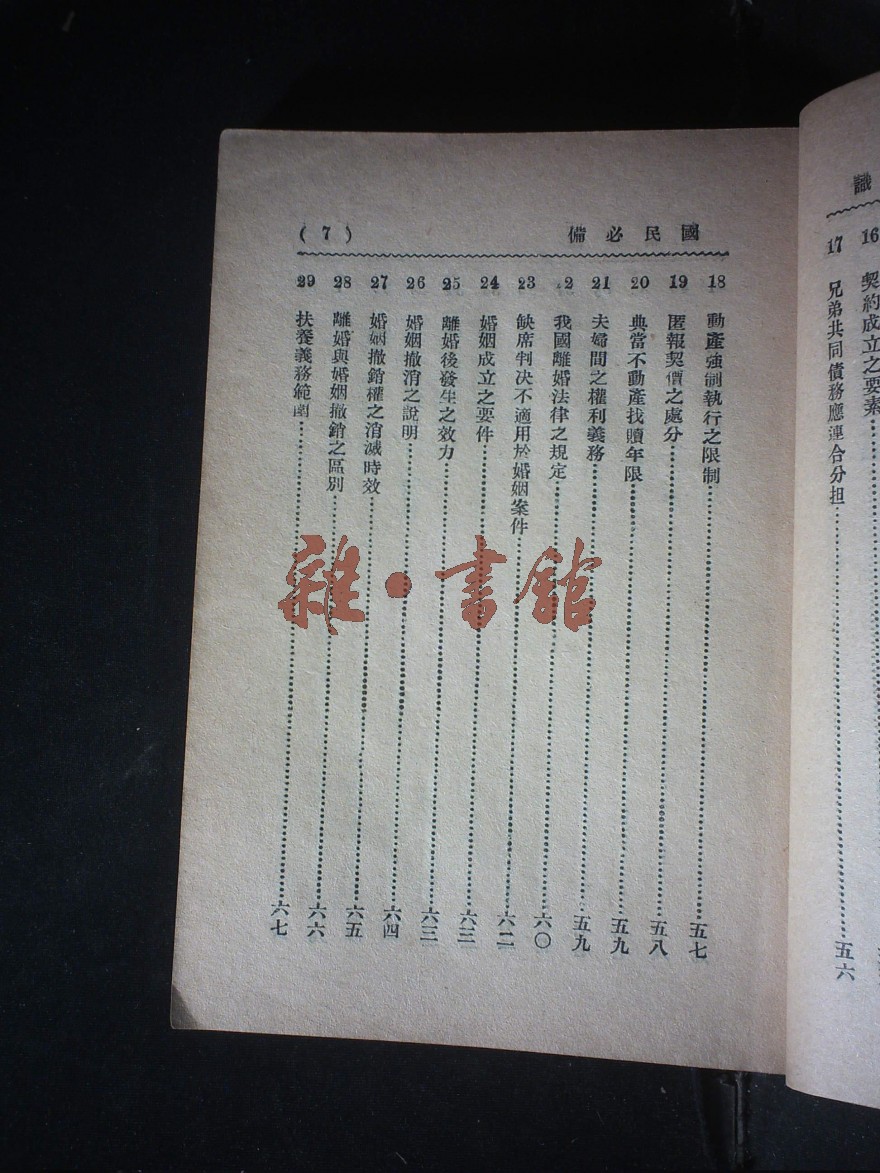 識
16 契約成立之要素
17 兄弟共同債務應連合分担……五六
國民必備 (7)
18 動產強制執行之限制……五七
19 匿報契價之處分……五八
20 典當不動產找贖年限……五九
21 夫婦間之權利義務……五九
22 我國離婚法律之規定……六〇
23 缺席判决不適用於婚姻案件……六二
24 婚姻成立之要件……六三
25 離婚後發生之效力……六三
26 婚姻撤消之說明……六四
27 婚姻撤銷權之消滅時效……六五
28 離婚與婚姻撤銷之區別……六六
29 扶養義務範圍……六七
雜·書館